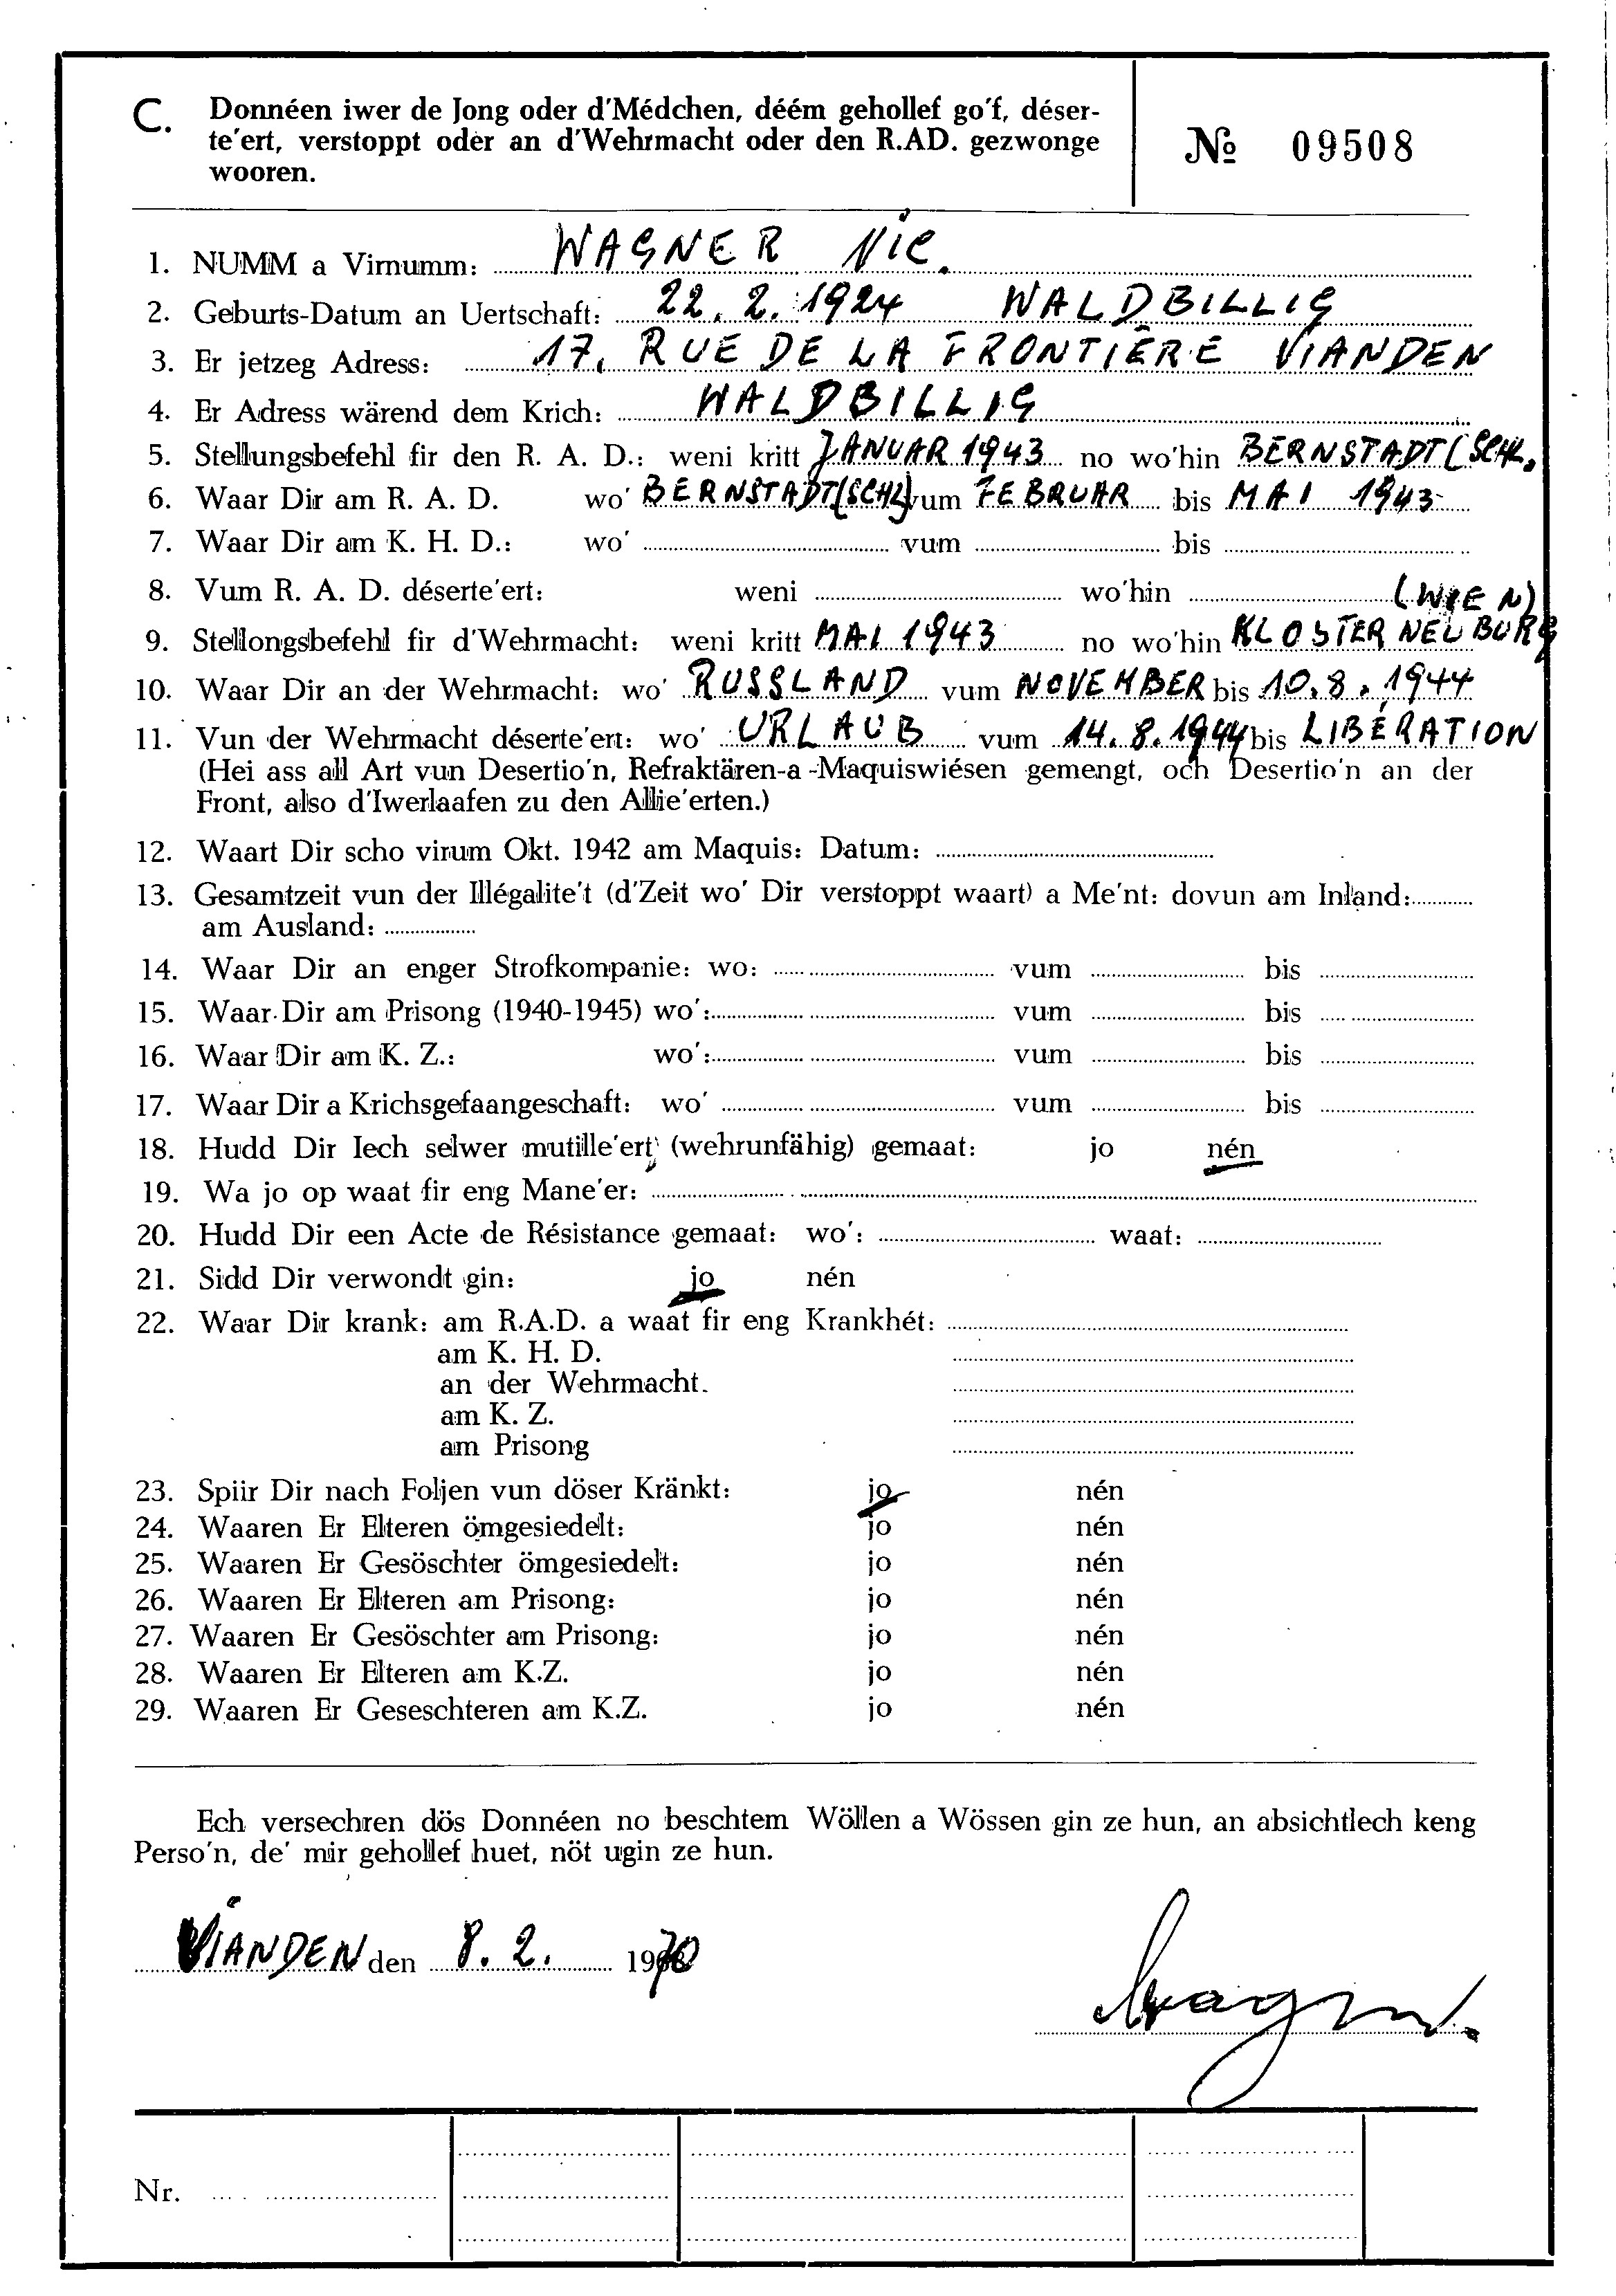 C. Donnéen iwer de Jong oder d'Médchen, déém gehollef go'f, déser-
te'ert, verstoppt oder an d'Wehrmacht oder den R.AD. gezwonge
wooren.
№ 09508
1. NUMM a Virnumm: WAGNER Nic.
2. Geburts-Datum an Uertschaft: 22.2.1924 WALDBILLIG
3. Er jetzeg Adress: 17, RUE DE LA FRONTIÈRE VIANDEN
4. Er Adress wärend dem Krich: WALDBILLIG
5. Stellungsbefehl fir den R. A. D.: weni kritt JANUAR 1943 no wo'hin BERNSTADT (SCHL.
6. Waar Dir am R. A. D. wo' BERNSTADT (SCHL) vum FEBRUAR bis MAI 1943
7. Waar Dir am K. H. D.: wo' vum bis
8. Vum R. A. D. déserte'ert: weni wo'hin
(WIEN)
9. Stellongsbefehl fir d'Wehrmacht: weni kritt MAI 1943 no wo'hin KLOSTERNEUBURG
10. Waar Dir an der Wehrmacht: wo' RUSSLAND vum NOVEMBER bis 10.8.1944
11. Vun der Wehrmacht déserte'ert: wo' URLAUB vum 14.8.1944 bis LIBÉRATION
(Hei ass all Art vun Desertio'n, Refraktären-a-Maquiswiésen gemengt, och Desertio'n an der
Front, also d'Iwerlaafen zu den Allie'erten.)
12. Waart Dir scho virum Okt. 1942 am Maquis: Datum:
13. Gesamtzeit vun der Illégalite't (d'Zeit wo' Dir verstoppt waart) a Me'nt: dovun am Inland:
am Ausland:
14. Waar Dir an enger Strofkompanie: wo: vum bis
15. Waar Dir am Prisong (1940-1945) wo': vum bis
16. Waar Dir am K. Z.: wo': vum bis
17. Waar Dir a Krichsgefaangeschaft: wo' vum bis
18. Hudd Dir Iech selwer mutille'ert (wehrunfähig) gemaat: jo nén
19. Wa jo op waat fir eng Mane'er:
20. Hudd Dir een Acte de Résistance gemaat: wo': waat:
21. Sidd Dir verwondt gin: jo nén
22. Waar Dir krank: am R.A.D. a waat fir eng Krankhét:
am K. H. D.
an der Wehrmacht.
am K. Z.
am Prisong
23. Spiir Dir nach Foljen vun döser Kränkt: jo nén
24. Waaren Er Elteren ömgesiedelt: jo nén
25. Waaren Er Gesöschter ömgesiedelt: jo nén
26. Waaren Er Elteren am Prisong: jo nén
27. Waaren Er Gesöschter am Prisong: jo nén
28. Waaren Er Elteren am K.Z. jo nén
29. Waaren Er Geseschteren am K.Z. jo nén
Ech versechren dös Donnéen no beschtem Wöllen a Wössen gin ze hun, an absichtlech keng
Perso'n, de' mir gehollef huet, nöt ugin ze hun.
VIANDEN den 8.2. 1970
Wagner.
Nr.